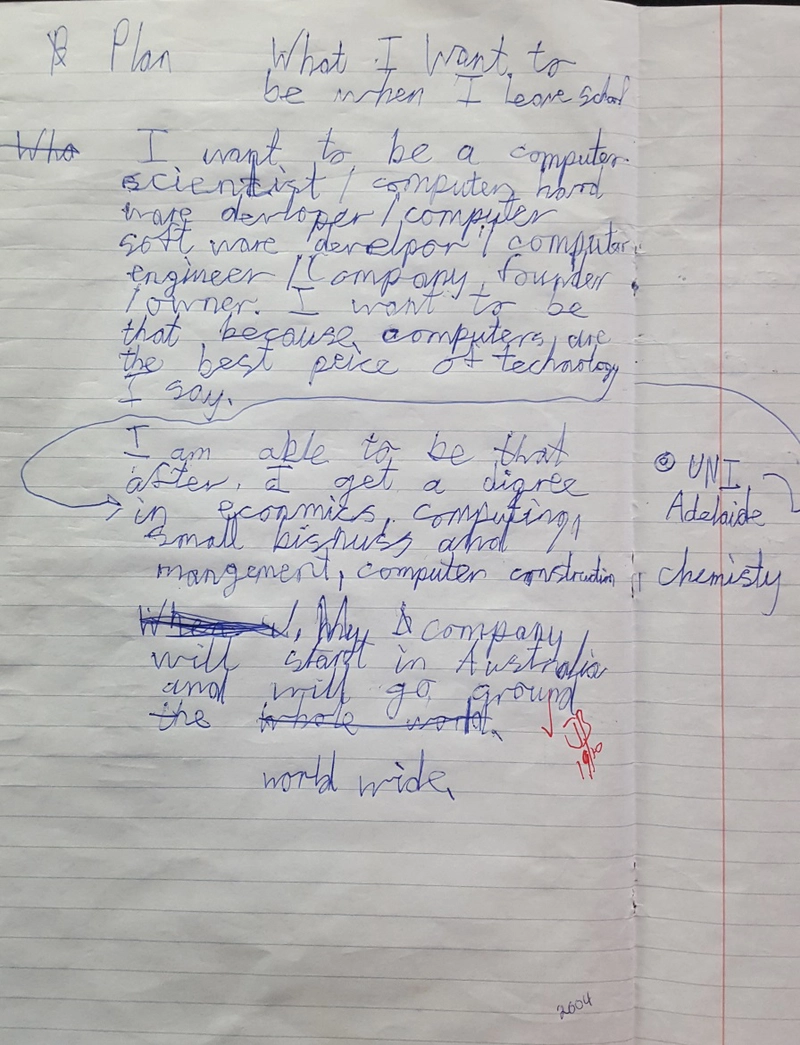 Plan What I Want to
be when I leave school
Who I want to be a computer
scientist / computer hard
ware devloper / computer
soft ware develpor / computer
engineer / Company founder
/ owner. I want to be
that because computers are
the best peice of technology
I say.
I am able to be that
after I get a degree
in econmics, computing,
small bisnuss and
mangement, computer construction, chemisty
@ UNI
Adelaide
When My company
will start in Australia
and will go ground
the whole world.
world wide.
JB
19/10
2004